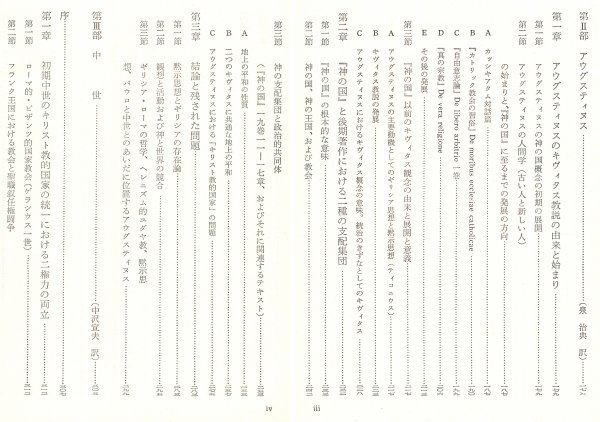 第Ⅱ部 アウグスティヌス (泉 治典 訳)
第一章 アウグスティヌスのキヴィタス教説の由来と始まり
第一節 アウグスティヌスの神の国概念の初期の展開
第二節 アウグスティヌスの人間学(古い人と新しい人)
の始まりと『神の国』に至るまでの発展の方向
A カッシキアクム対話篇
B 『カトリック教会の習俗』De moribus ecclesiae catholicae
C 『自由意志論』De libero arbitrio 一巻
D 『真の宗教』De vera religione
E その後の発展
第三節 『神の国』以前のキヴィタス観念の由来と展開と意義
A アウグスティヌスの主要動機としてのギリシア思想と黙示思想(ティコニウス)
B キヴィタス教説の発展
C アウグスティヌスにおけるキヴィタス概念の意味、統治のきずなとしてのキヴィタス
第二章 『神の国』と後期著作における二種の支配集団
第一節 『神の国』の根本的な意味
第二節 神の国、神の王国、および教会
iii
第三節 神の支配集団と政治的共同体
(『神の国』一九巻一一-一七章、およびそれに関連するテキスト)
A 地上の平和の性質
B 二つのキヴィタスに共通な地上の平和
C アウグスティヌスにおける「キリスト教的国家」の問題
第三章 結論と残された問題
第一節 黙示思想とギリシアの存在論
第二節 観想と活動および神と世界の競合
第三節 ギリシア・ローマの哲学、ヘレニズム的ユダヤ教、黙示思
想、パウロと中世とのあいだに位置するアウグスティヌス
第Ⅲ部 中 世 (中沢宣夫 訳)
序
第一章 初期中世のキリスト教的国家の統一における二権力の両立
第一節 ローマ的・ビザンツ的国家教会(ゲラシウス一世)
第二節 フランク王国における教会と聖職叙任権闘争
iv